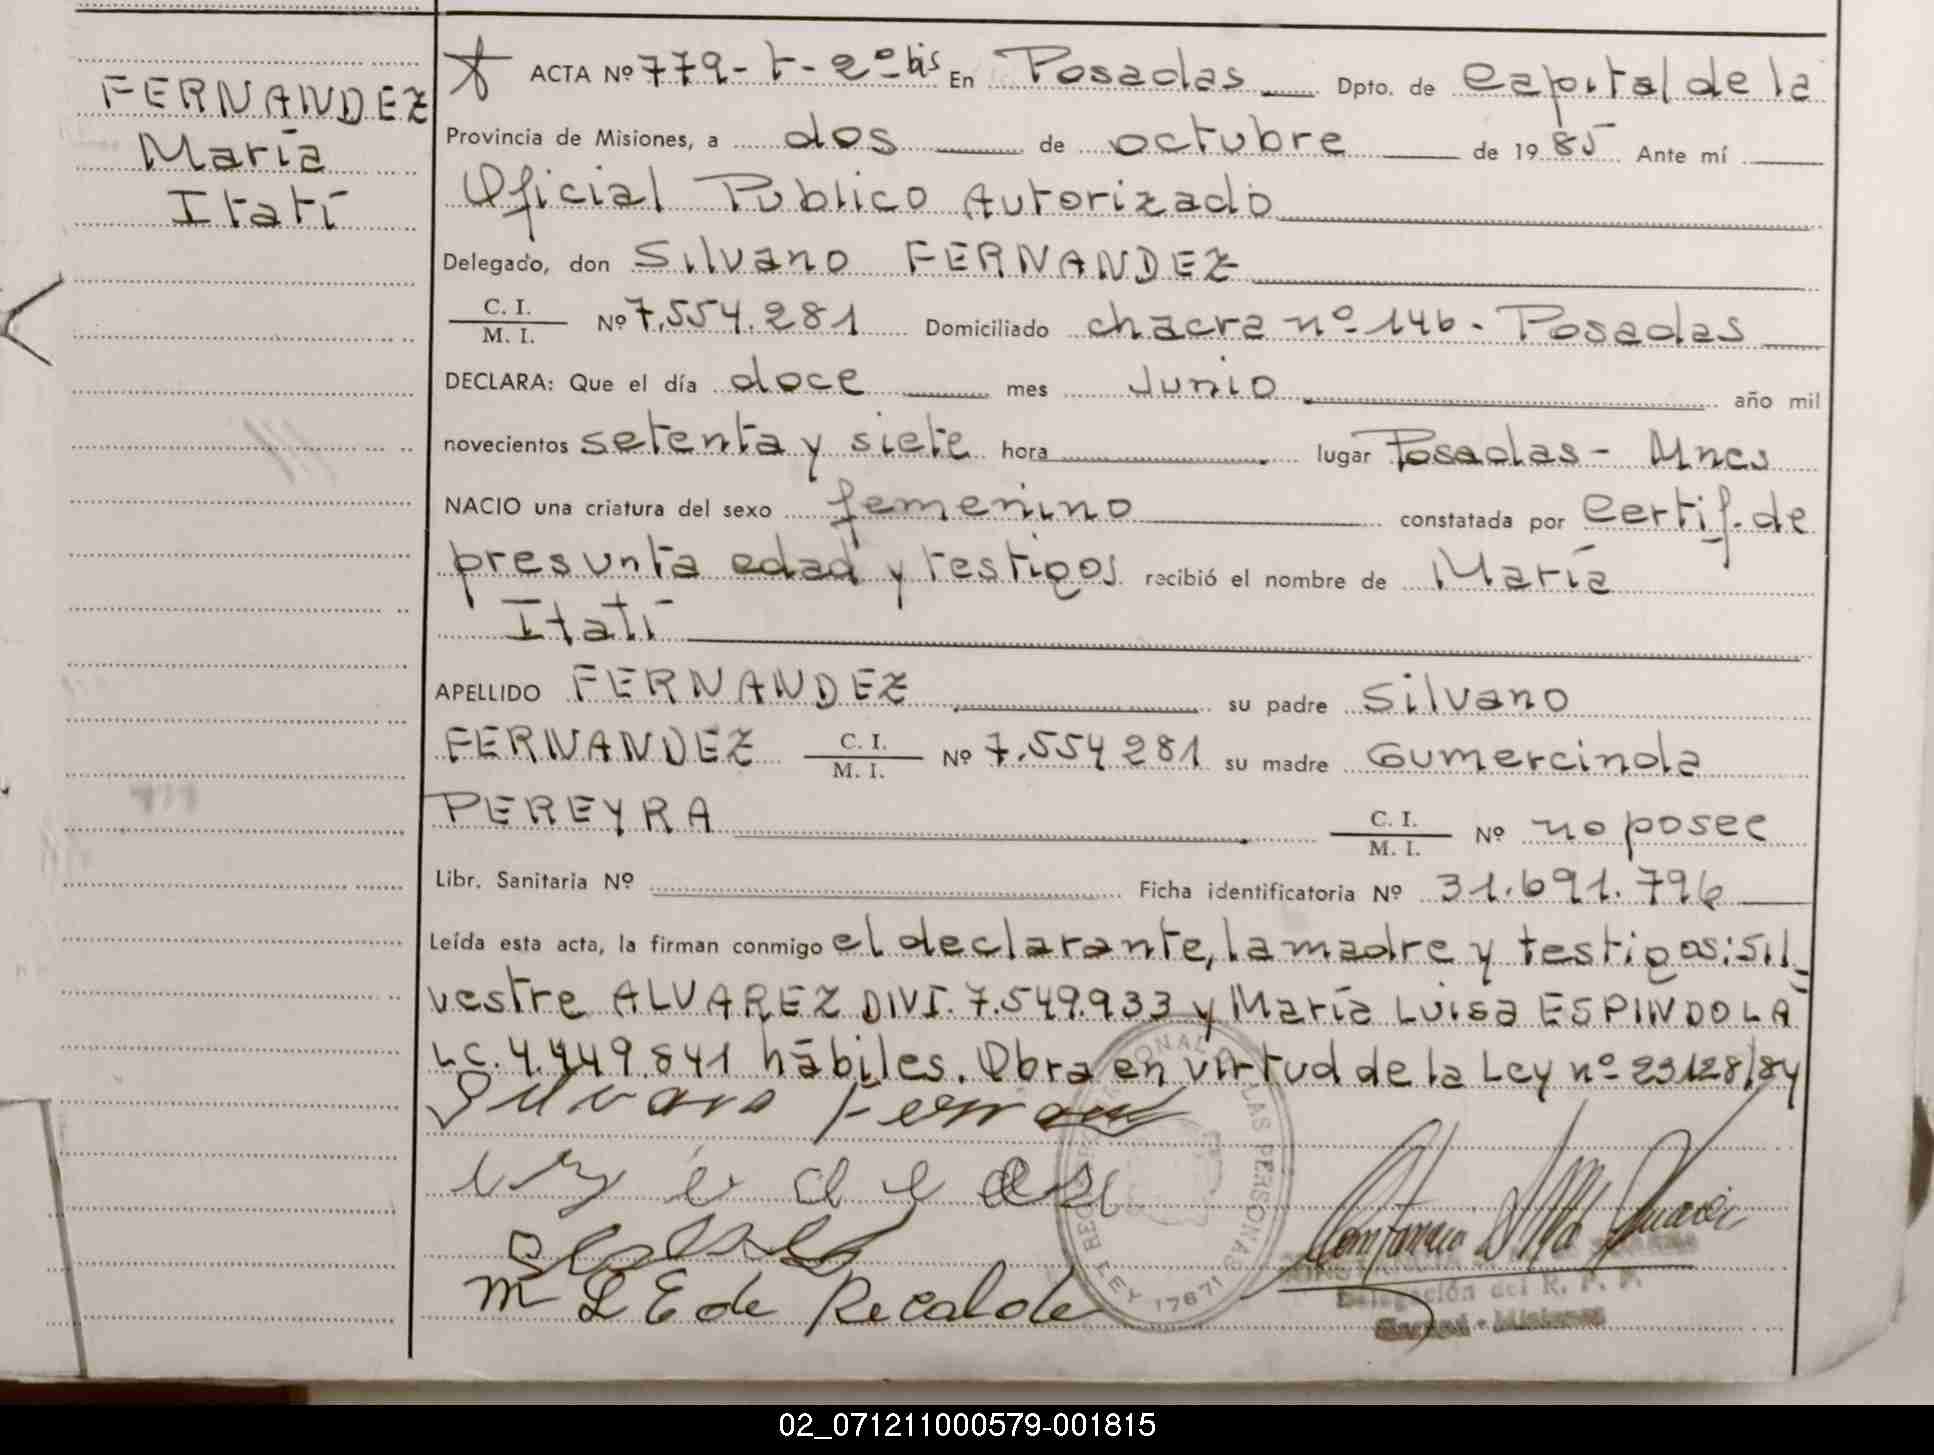 FERNANDEZ
María
Itatí
ACTA Nº 779-t-2º bis En Posadas Dpto. de Capital de la
Provincia de Misiones, a dos de octubre de 1985 Ante mí
Oficial Publico Autorizado
Delegado, don Silvano FERNANDEZ
C. I.
M. I. Nº 7.554.281 Domiciliado chacra nº 146. Posadas
DECLARA: Que el día doce mes Junio año mil
novecientos setenta y siete hora lugar Posadas - Mnes
NACIO una criatura del sexo femenino constatada por Certif. de
presunta edad y testigos recibió el nombre de María
Itatí
APELLIDO FERNANDEZ su padre Silvano
FERNANDEZ C. I. M. I. Nº 7.554 281 su madre Gumercinda
PEREYRA C. I. M. I. Nº no posee
Libr. Sanitaria Nº Ficha identificatoria Nº 31.691.796
Leída esta acta, la firman conmigo el declarante, la madre y testigos: Sil-
vestre ALVAREZ DNI. 7.549.933 y María Luisa ESPINDOLA
LC. 4.449.841 hábiles. Obra en virtud de la Ley nº 23128/84
Silvano Fernan
M L E de Recalde
LAS PERSONAS
LEY 17671
Delegación del R. P. P.
- Misiones
02_071211000579-001815